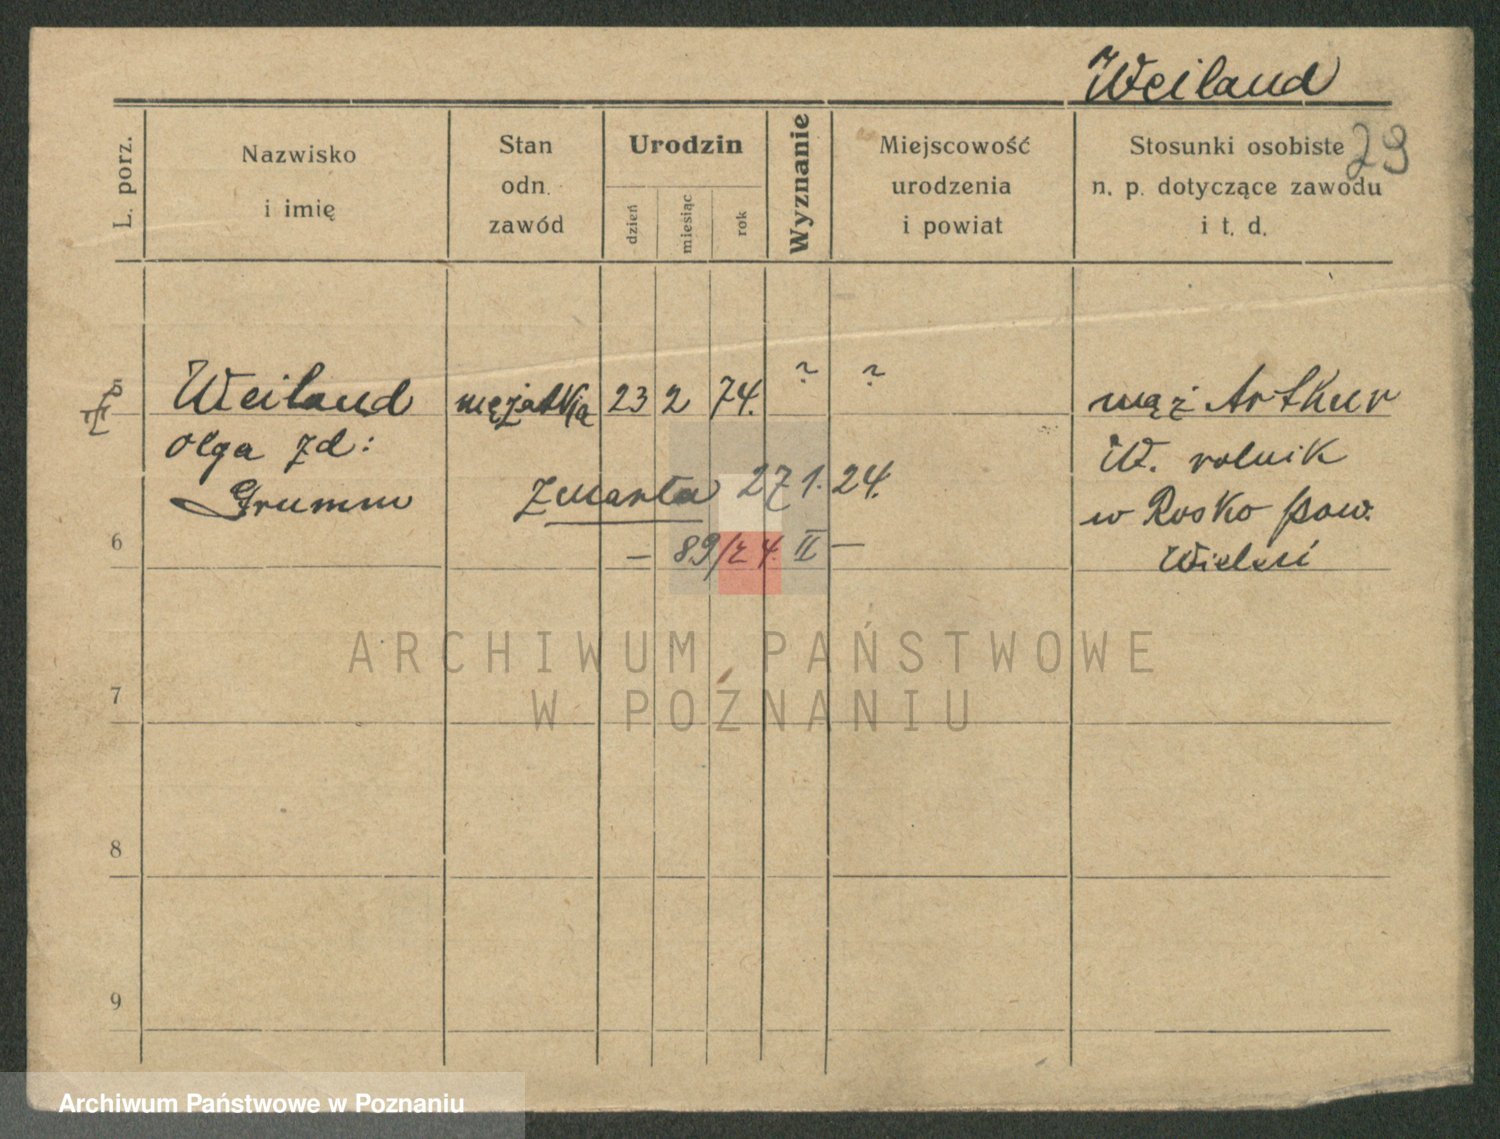 Weiland
29
L. porz.
Nazwisko
i imię
Stan
odn.
zawód
Urodzin
dzień
miesiąc
rok
Wyznanie
Miejscowość
urodzenia
i powiat
Stosunki osobiste
n. p. dotyczące zawodu
i t. d.
5
Weiland mężatka 23 2 74. ? ? mąż Arthur
Olga zd: W. rolnik
Grumm Zmarła 27 1. 24. w Rosko pow.
6 — 89/24. II — Wieleń
7
8
9
ARCHIWUM PAŃSTWOWE
W POZNANIU
Archiwum Państwowe w Poznaniu